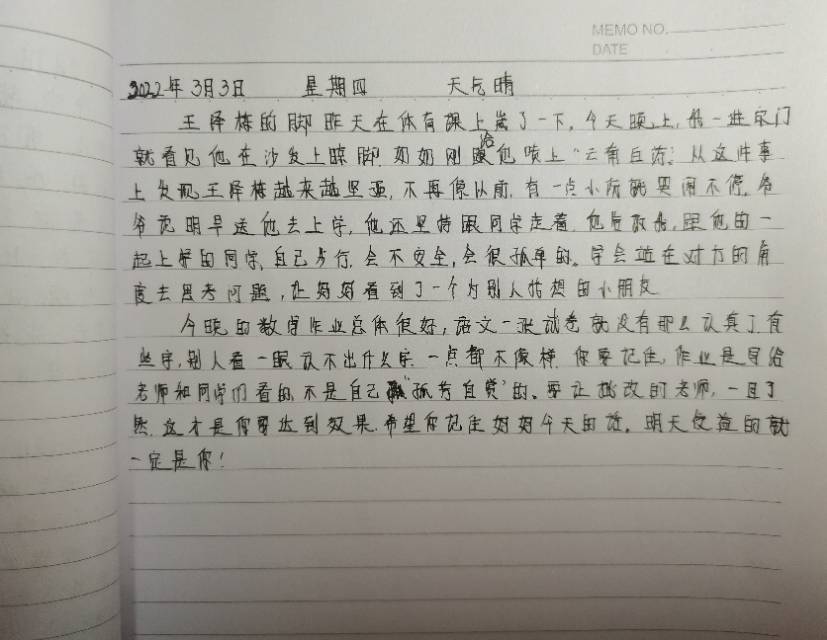 MEMO NO.
DATE
2022年3月3日 星期四 天气晴
王泽栋的脚昨天在体育课上崴了一下,今天晚上,我一进家门
就看见他在沙发上晾脚,奶奶刚给他喷上“云南白药”。从这件事
上发现王泽栋越来越坚强,不再像以前,有一点小病就哭闹不停。爷
爷说明早送他去上学,他还坚持跟同学走着,他告诉我,跟他的一
起上学的同学,自己步行,会不安全,会很孤单的。学会站在对方的角
度去思考问题,让妈妈看到了一个为别人着想的小朋友
今晚的数学作业总体很好,语文一张试卷就没有那么认真了,有
些字,别人看一眼认不出什么字,一点都不像样,你要记住,作业是写给
老师和同学们看的,不是自己“孤芳自赏”的。要让批改的老师,一目了
然,这才是你要达到效果,希望你记住妈妈今天的话。明天受益的就
一定是你!